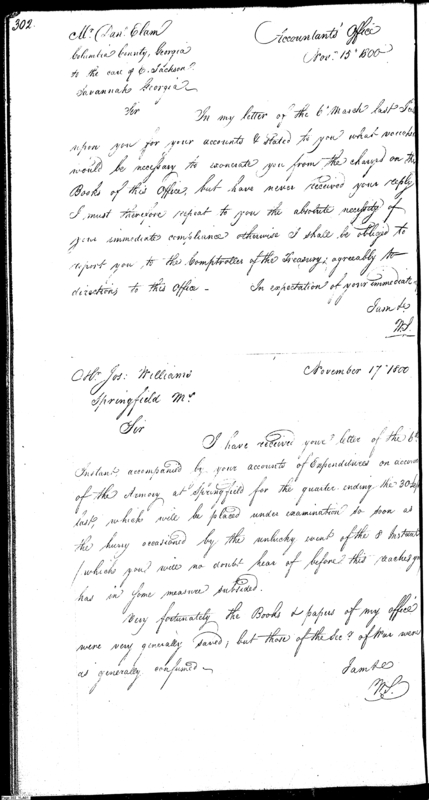 302
Mr. Dan: Elam
Accountants' Office
Columbia County, Georgia
Nov. 13th 1800
to the care of E. Jackson
Savannah Georgia
Sir
In my letter of the 6th March last I
upon you for your accounts & stated to you what vouchers
would be necessary to exonerate you from the charges on the
Books of this Office, but have never received your reply,
I must therefore repeat to you the absolute necessity of
your immediate compliance otherwise I shall be obliged to
report you to the Comptroller of the Treasury, agreeably to
directions to this Office - In expectation of your immediate
I am &c
W.S.
Jos: Williams
November 17th 1800
Springfield Ms.
Sir
I have received your letter of the 6th
Instant accompanied by your accounts of Expenditures on account
of the Armory at Springfield for the quarter ending the 30 Sep
last, which will be placed under examination so soon as
the hurry occasioned by the unlucky event of the 8 Instant
(which you will no doubt hear of before this reaches you
has in some measure subsided.
Very fortunately the Books & papers of my office
were very generally saved, but those of the Secy of War were
as generally consumed -
I am &c
W.S.